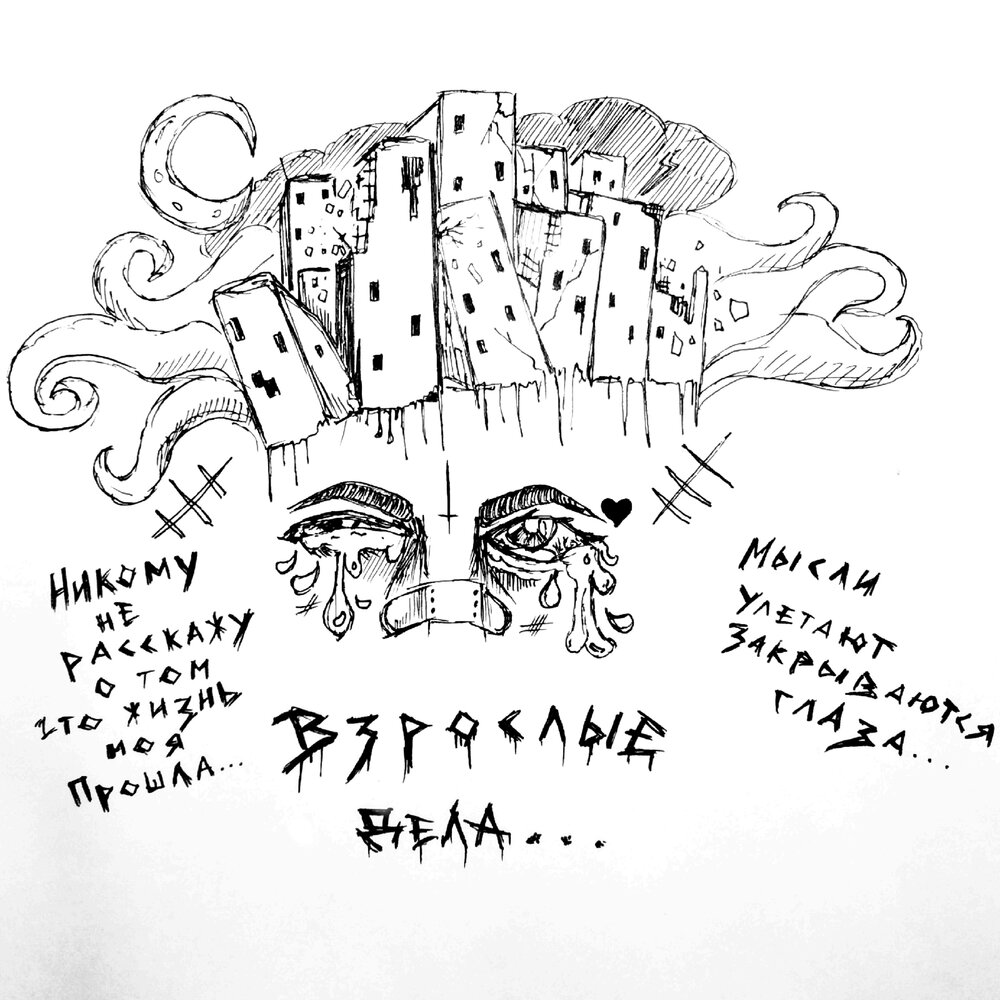 Никому
не
расскажу
о том
что жизнь
моя
прошла...
Мысли
улетают
закрываются
глаза...
Взрослые
дела...